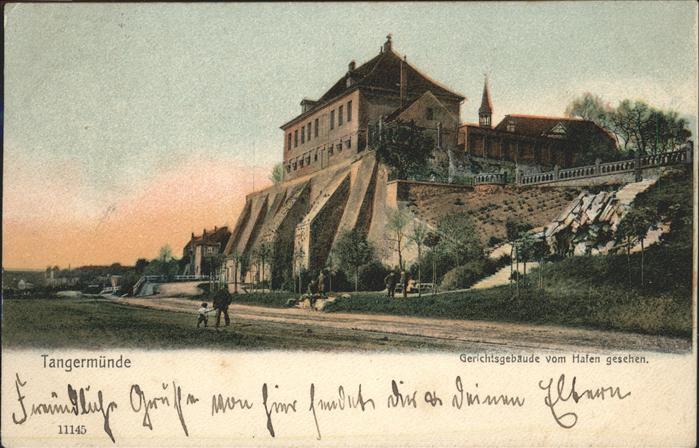 Tangermünde
Gerichtsgebäude vom Hafen gesehen.
Freundliche Grüße von hier sendet dir u deinen Eltern
11145